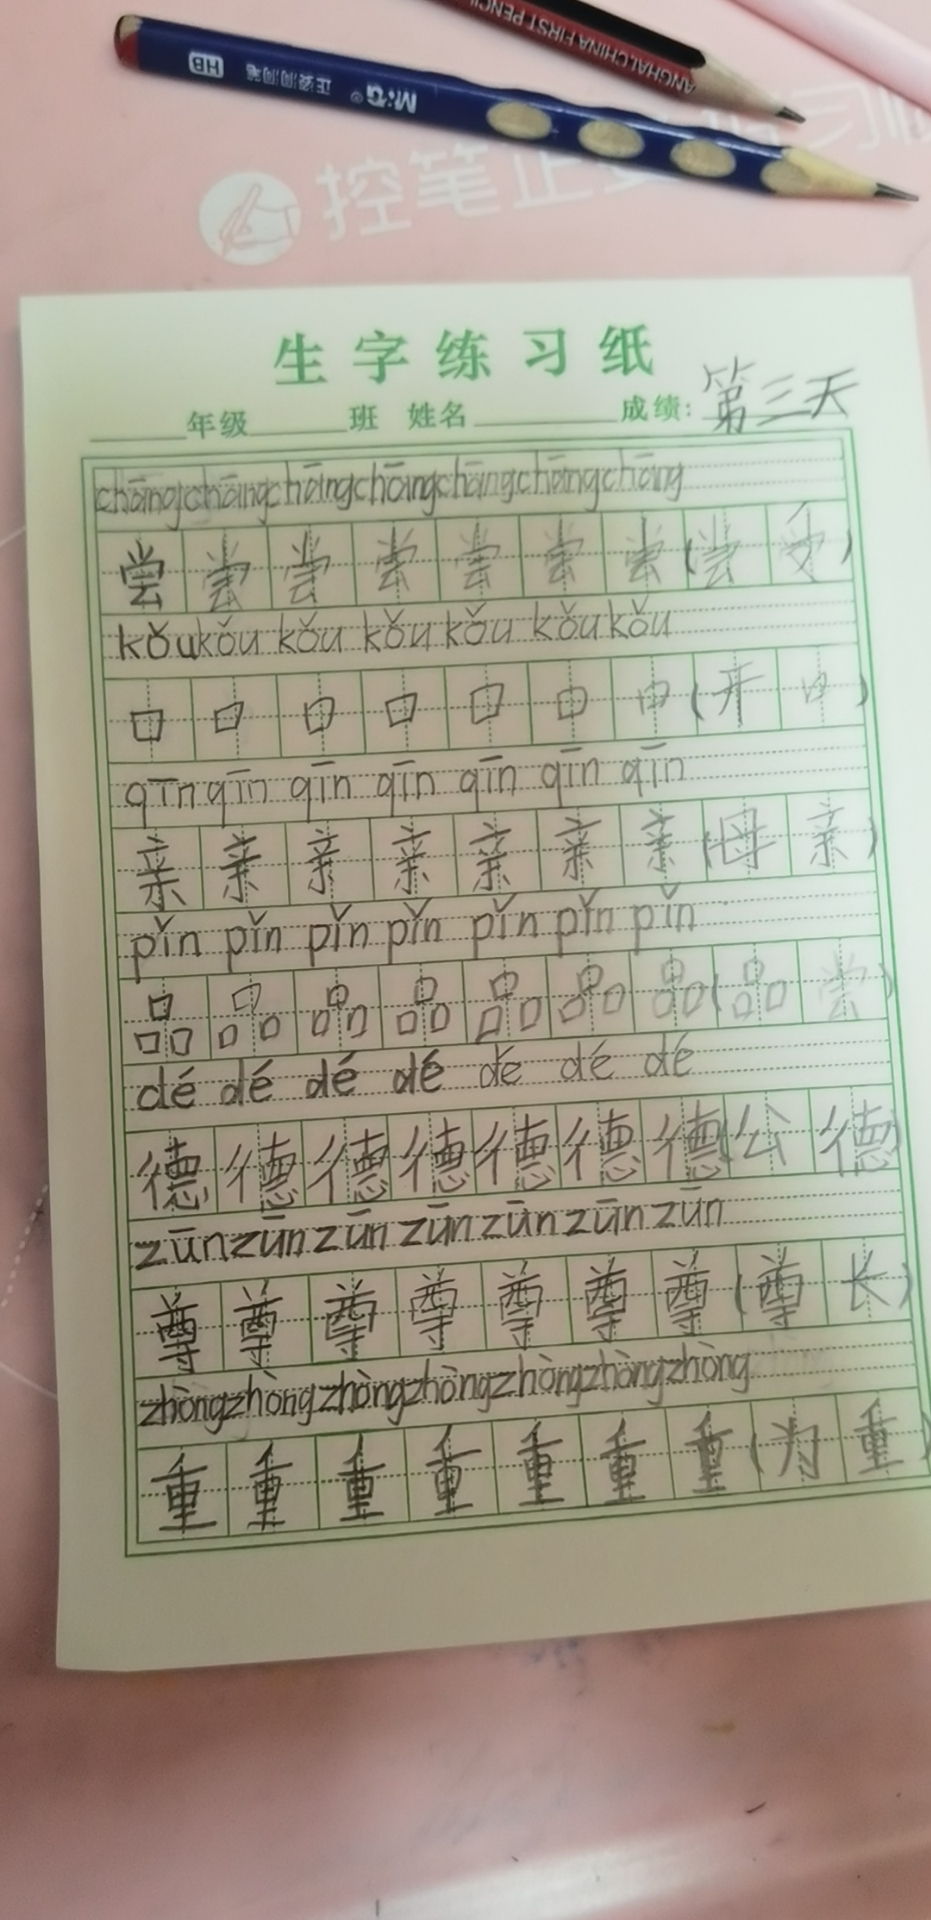 ANGHAI,CHINA FIRST PENCIL
HB 正姿洞洞笔 M&G®
控笔正姿
生字练习纸
年级 班 姓名 成绩: 第三天
chāng chāng chāng chāng chāng chāng chāng
尝 尝 尝 尝 尝 尝 尝 (尝 受)
kǒu kǒu kǒu kǒu kǒu kǒu kǒu
口 口 口 口 口 口 口 (开 口)
qīn qīn qīn qīn qīn qīn qīn
亲 亲 亲 亲 亲 亲 亲 (母 亲)
pǐn pǐn pǐn pǐn pǐn pǐn pǐn
品 品 品 品 品 品 品 (品 尝)
dé dé dé dé dé dé dé
德 德 德 德 德 德 德 (公 德)
zūn zūn zūn zūn zūn zūn zūn
尊 尊 尊 尊 尊 尊 尊 (尊 长)
zhòng zhòng zhòng zhòng zhòng zhòng zhòng
重 重 重 重 重 重 重 (为 重)